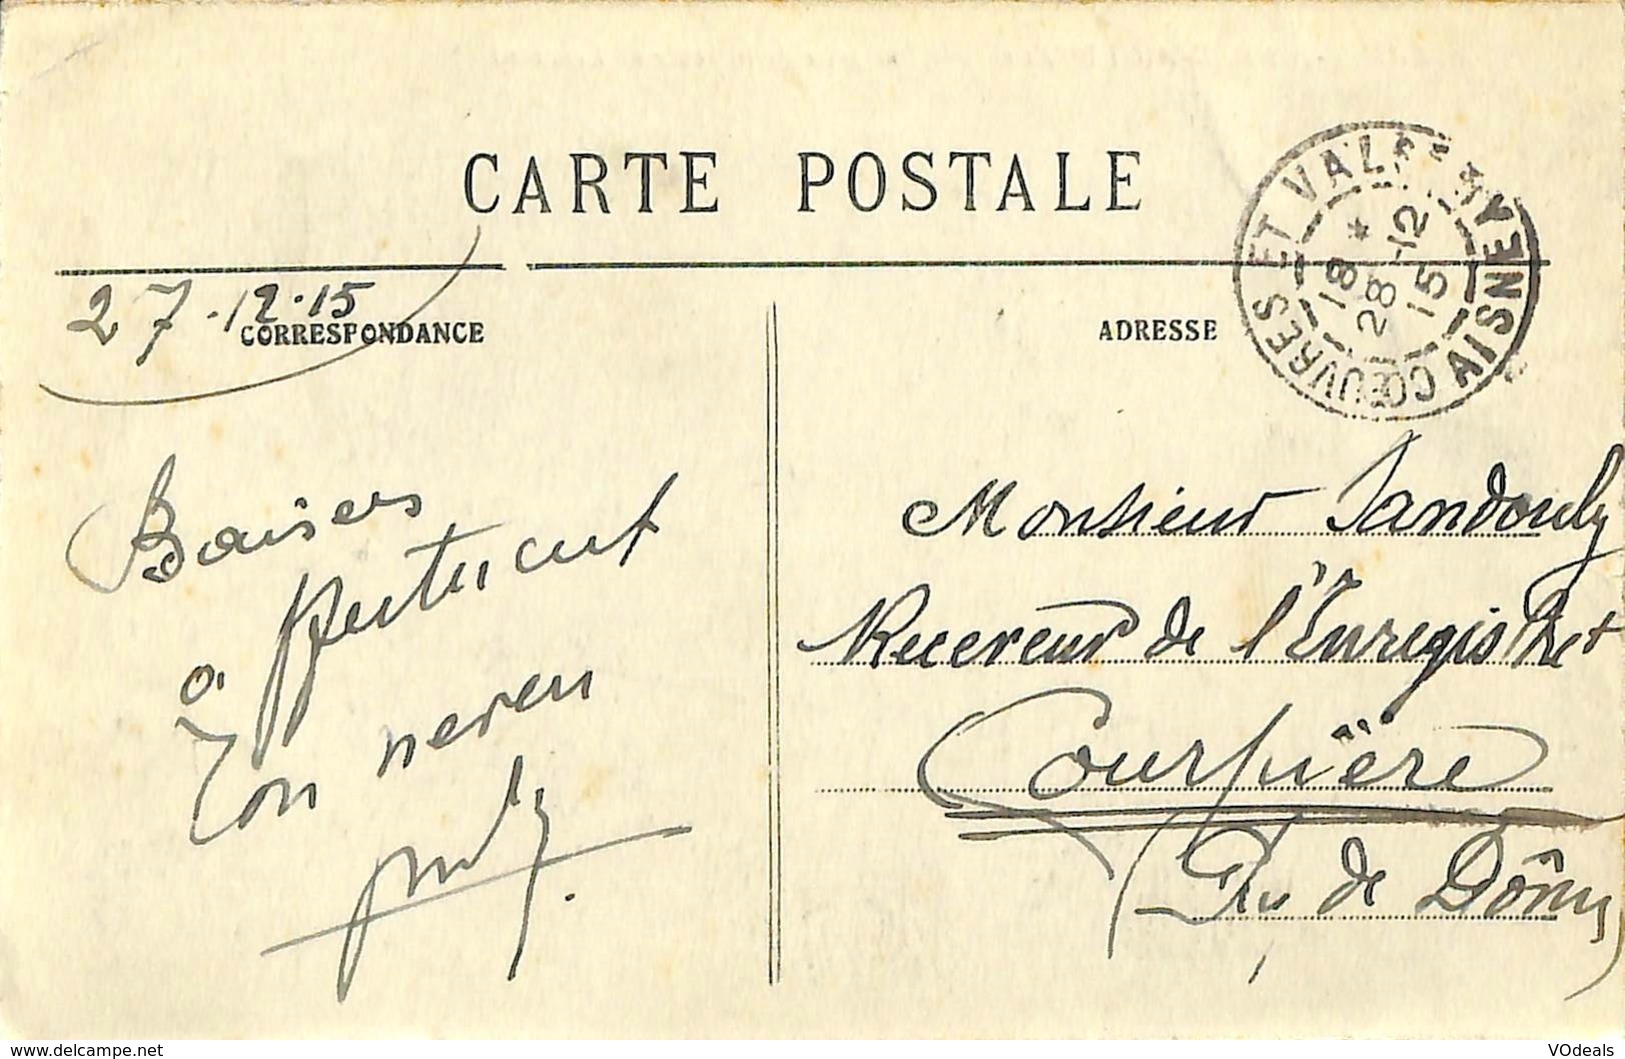 CARTE POSTALE
27-12-15
CORRESPONDANCE
ADRESSE
CŒUVRES ET VALSERY AISNE
18 *
28-12
15
Baisers
à
Ton neveu
Monsieur Jandouly
Receveur de l'Enregistret
Courpière
Puy de Dôme
www.delcampe.net
VOdeals